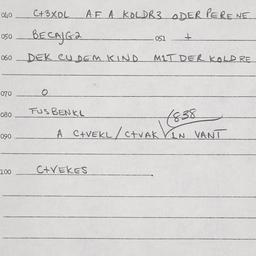 040 C+3XOL AF A KOLDR3 ODER PERENE
050 BECAJG2 051 +
060 DEK CU DEM KIND MIT DER KOLDRE
070 O
080 FUSBENKL (838
090 A C+VEKL/C+VAK IN VANT
100 C+VEKES